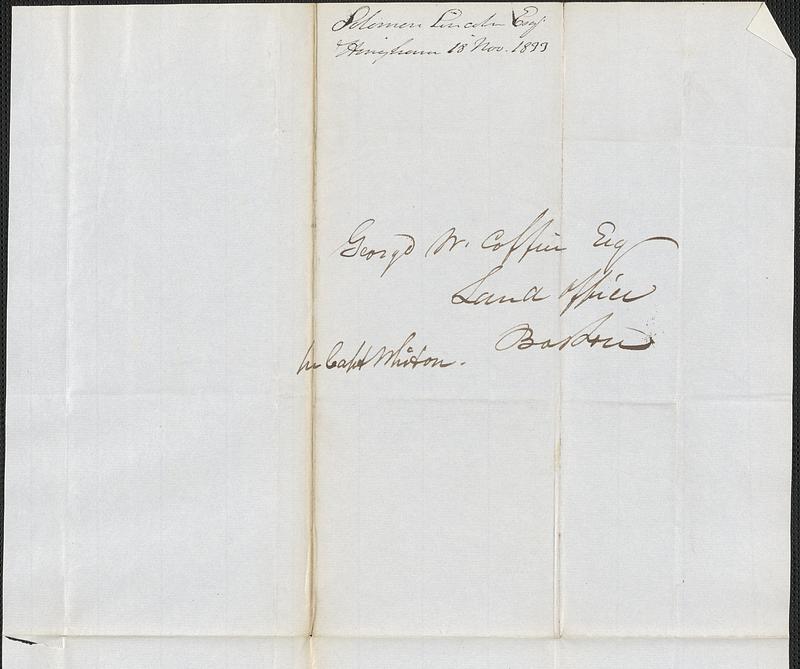 Solomon Lincoln Esq.
Hingham 18 Nov. 1833
George W. Coffin Esq
Land Office
Boston
pr Capt Whiton.